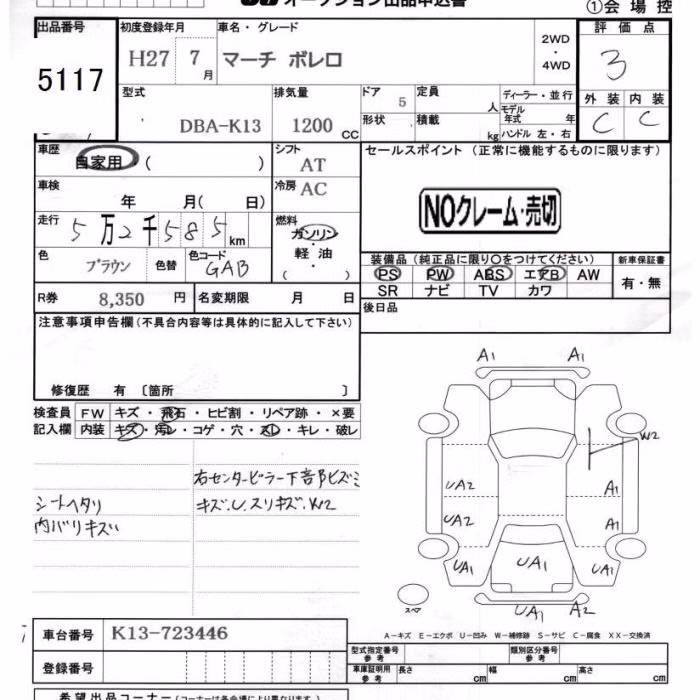 オークション出品申込書
①会場控
出品番号 初度登録年月 車名・グレード 評価点
5117 H27 7月 マーチ ボレロ 2WD・4WD 3
型式 排気量 ドア 定員 人 ディーラー・並行 外装 内装
DBA-K13 1200CC 5 形状 積載 kg モデル年式 年 ハンドル 左・右 C C
車歴 自家用 ( ) シフト AT セールスポイント (正常に機能するものに限ります)
車検 年 月( 日) 冷房 AC
NOクレーム・売切
走行 5万2千585km 燃料 ガソリン・軽油・( )
色 ブラウン 色替 色コード GAB
装備品 (純正品に限り○をつけてください) 新車保証書
PS PW ABS エアB AW 有・無
SR ナビ TV カワ
R券 8,350 円 名変期限 月 日
後日品
注意事項申告欄 (不具合内容等は具体的に記入して下さい)
修復歴 有 〔箇所 〕
検査員 FW キズ・飛石・ヒビ割・リペア跡・×要
記入欄 内装 キズ・汚レ・コゲ・穴・スレ・キレ・破レ
右センターピラー下部ヒズミ
シートヘタリ キズ.U.スリキズ.W2
内バリキズ
A1 A1
W2
UA2 A1
UA2 A1
UA1 UA1 UA1
スペア UA1 A2
A－キズ E－エクボ U－凹み W－補修跡 S－サビ C－腐食 XX－交換済
車台番号 K13-723446
登録番号
型式指定番号 参考 類別区分番号 参考
車庫証明用 参考 長さ cm 幅 cm 高さ cm
希望出品コーナー (コーナーは各会場により異なります。)